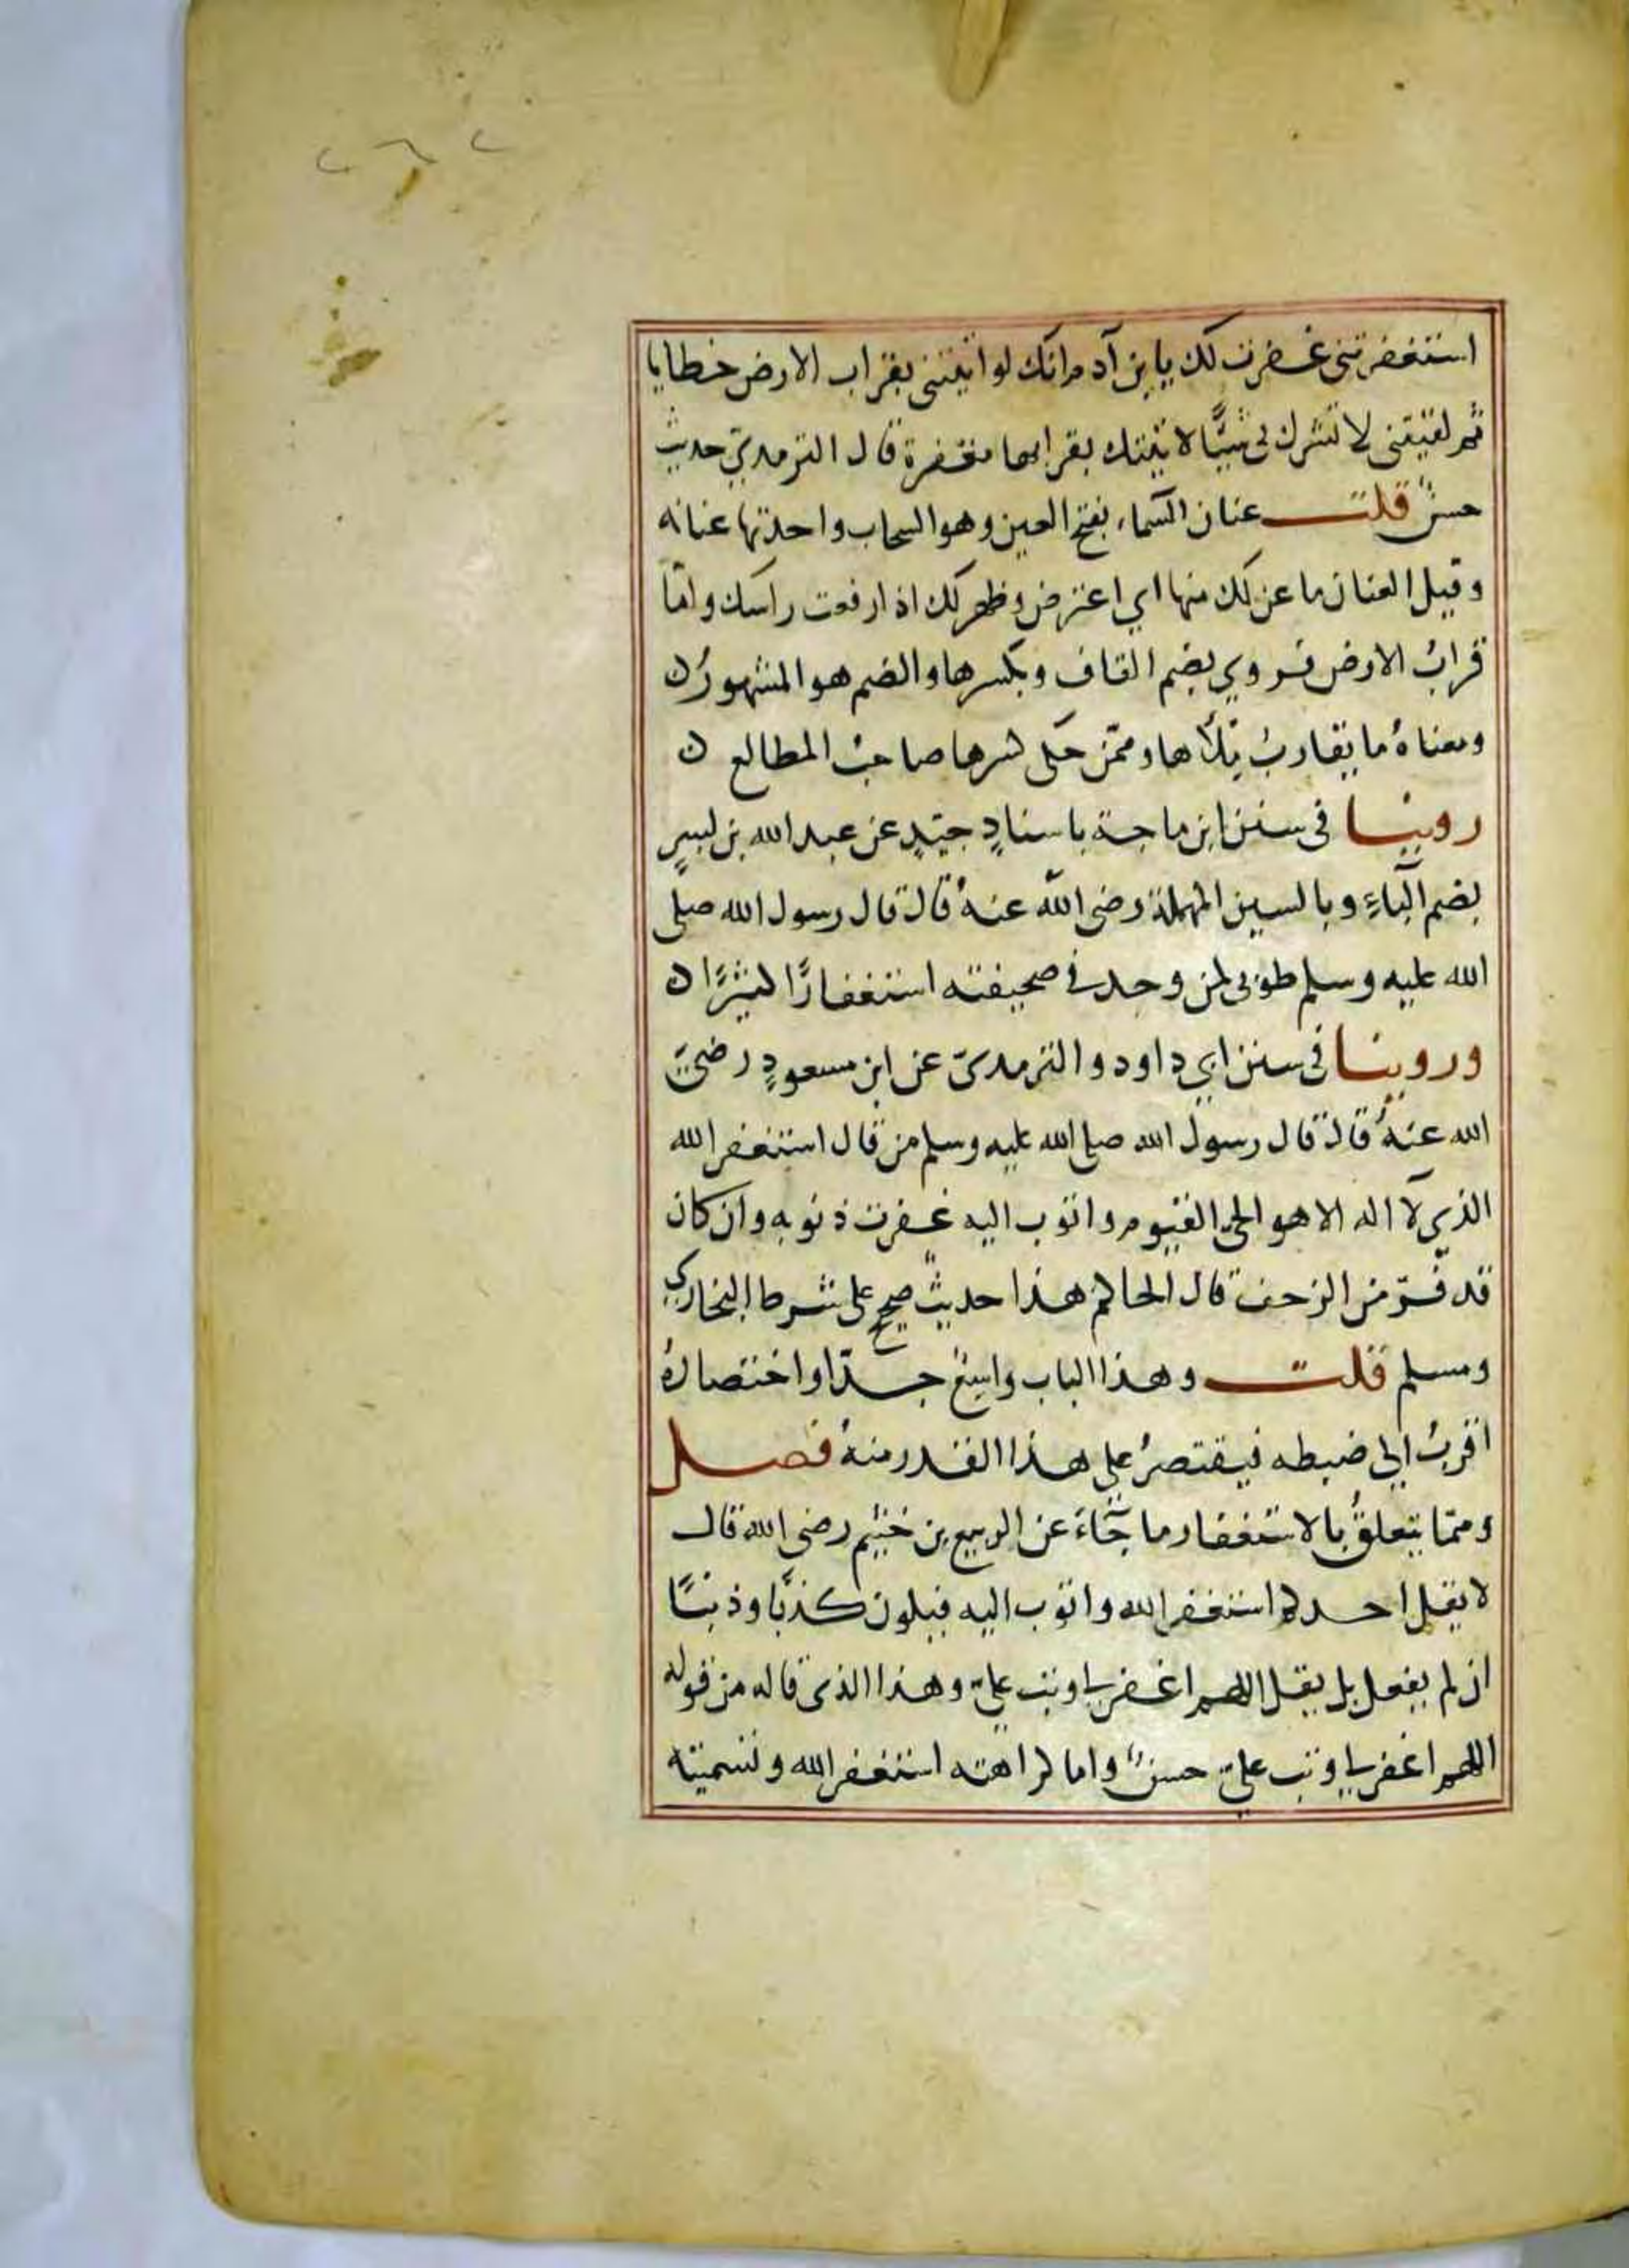 استغفرتنى غفرت لك يا بن آدم انك لو اتيتنى بقراب الارض خطايا
ثم لقيتنى لا تشرك بى شيئًا لاتيتك بقرابها مغفرة قال الترمذي حديث
حسنٌ قلت عنان السّماء بفتح العين وهو السحاب واحدتها عنانه
وقيل العنان ما عن لك منها اي اعترض وظهر لك اذا رفعت راسك وامّا
قرابُ الارض فروي بضم القاف وبكسرها والضم هو المشهورُ ن
ومعناهُ ما يقاربُ مِلأها وممّن حكى كسرها صاحبُ المطالع ن
روينا فى سنن ابن ماجة باسنادٍ جيّدٍ عن عبد الله بن بسرٍ
بضم الباءِ وبالسين المهملة رضى الله عنهُ قال قال رسول الله صلى
الله عليه وسلم طوبى لمن وجد فى صحيفته استغفارًا كثيرًا ن
وروينا فى سنن ابي داود والترمدىّ عن ابن مسعودٍ رضىَ
الله عنهُ قال قال رسول الله صلى الله عليه وسلم من قال استغفر الله
الذي لا اله الا هو الحى القيوم واتوب اليه غفرت ذنوبه وان كان
قد فرّ من الزحف قال الحاكم هذا حديثٌ صحيح على شرط البخاري
ومسلم قلت وهذا الباب واسعٌ جدّا واختصارهُ
اقربُ الي ضبطه فيقتصرُ على هذا القدر منهُ فصل
وممّا يتعلقُ بالاستغفار ما جَآءَ عن الربيع بن خثيم رضى الله قال
لا يقل احدكم استغفر الله واتوب اليه فيكون كذبًا وذنبًا
ان لم يفعل بل يقل اللهم اغفر لي وتب عليّ وهذا الذى قاله من قوله
اللهم اغفر لي وتب عليّ حسنٌ واما كراهته استغفر الله وتسميته